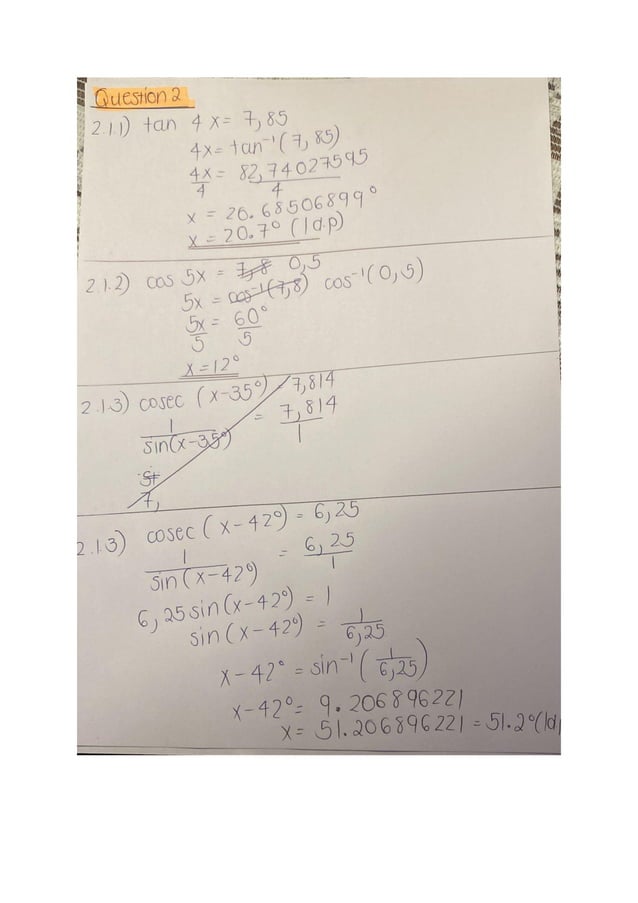 Question 2
2.1.1) tan 4x = 7,85
4x = tan⁻¹(7,85)
4x/4 = 82,74027595/4
x = 20.68506899°
x = 20.7° (1d.p)
2.1.2) cos 5x = 7,8 0,5
5x = cos⁻¹(7,8) cos⁻¹(0,5)
5x/5 = 60°/5
x = 12°
2.1.3) cosec (x-35°) = 7,814
1/sin(x-35°) = 7,814/1
si
7,
2.1.3) cosec (x-42°) = 6,25
1/sin(x-42°) = 6,25/1
6,25 sin(x-42°) = 1
sin(x-42°) = 1/6,25
x-42° = sin⁻¹(1/6,25)
x-42° = 9.206896221
x = 51.206896221 = 51.2° (1d